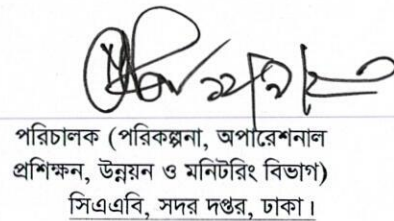 পরিচালক (পরিকল্পনা, অপারেশনাল
প্রশিক্ষন, উন্নয়ন ও মনিটরিং বিভাগ)
সিএএবি, সদর দপ্তর, ঢাকা।